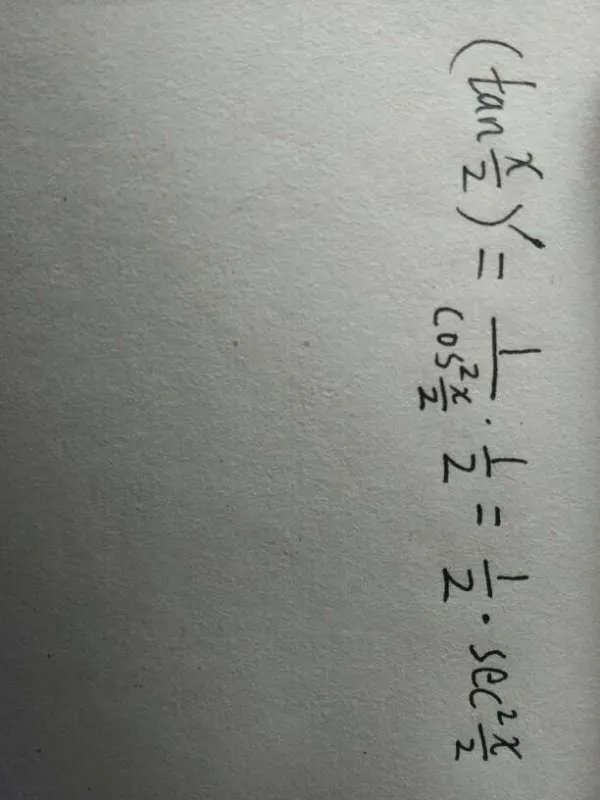 (tan x/2)' = 1/cos² x/2 · 1/2 = 1/2 · sec² x/2